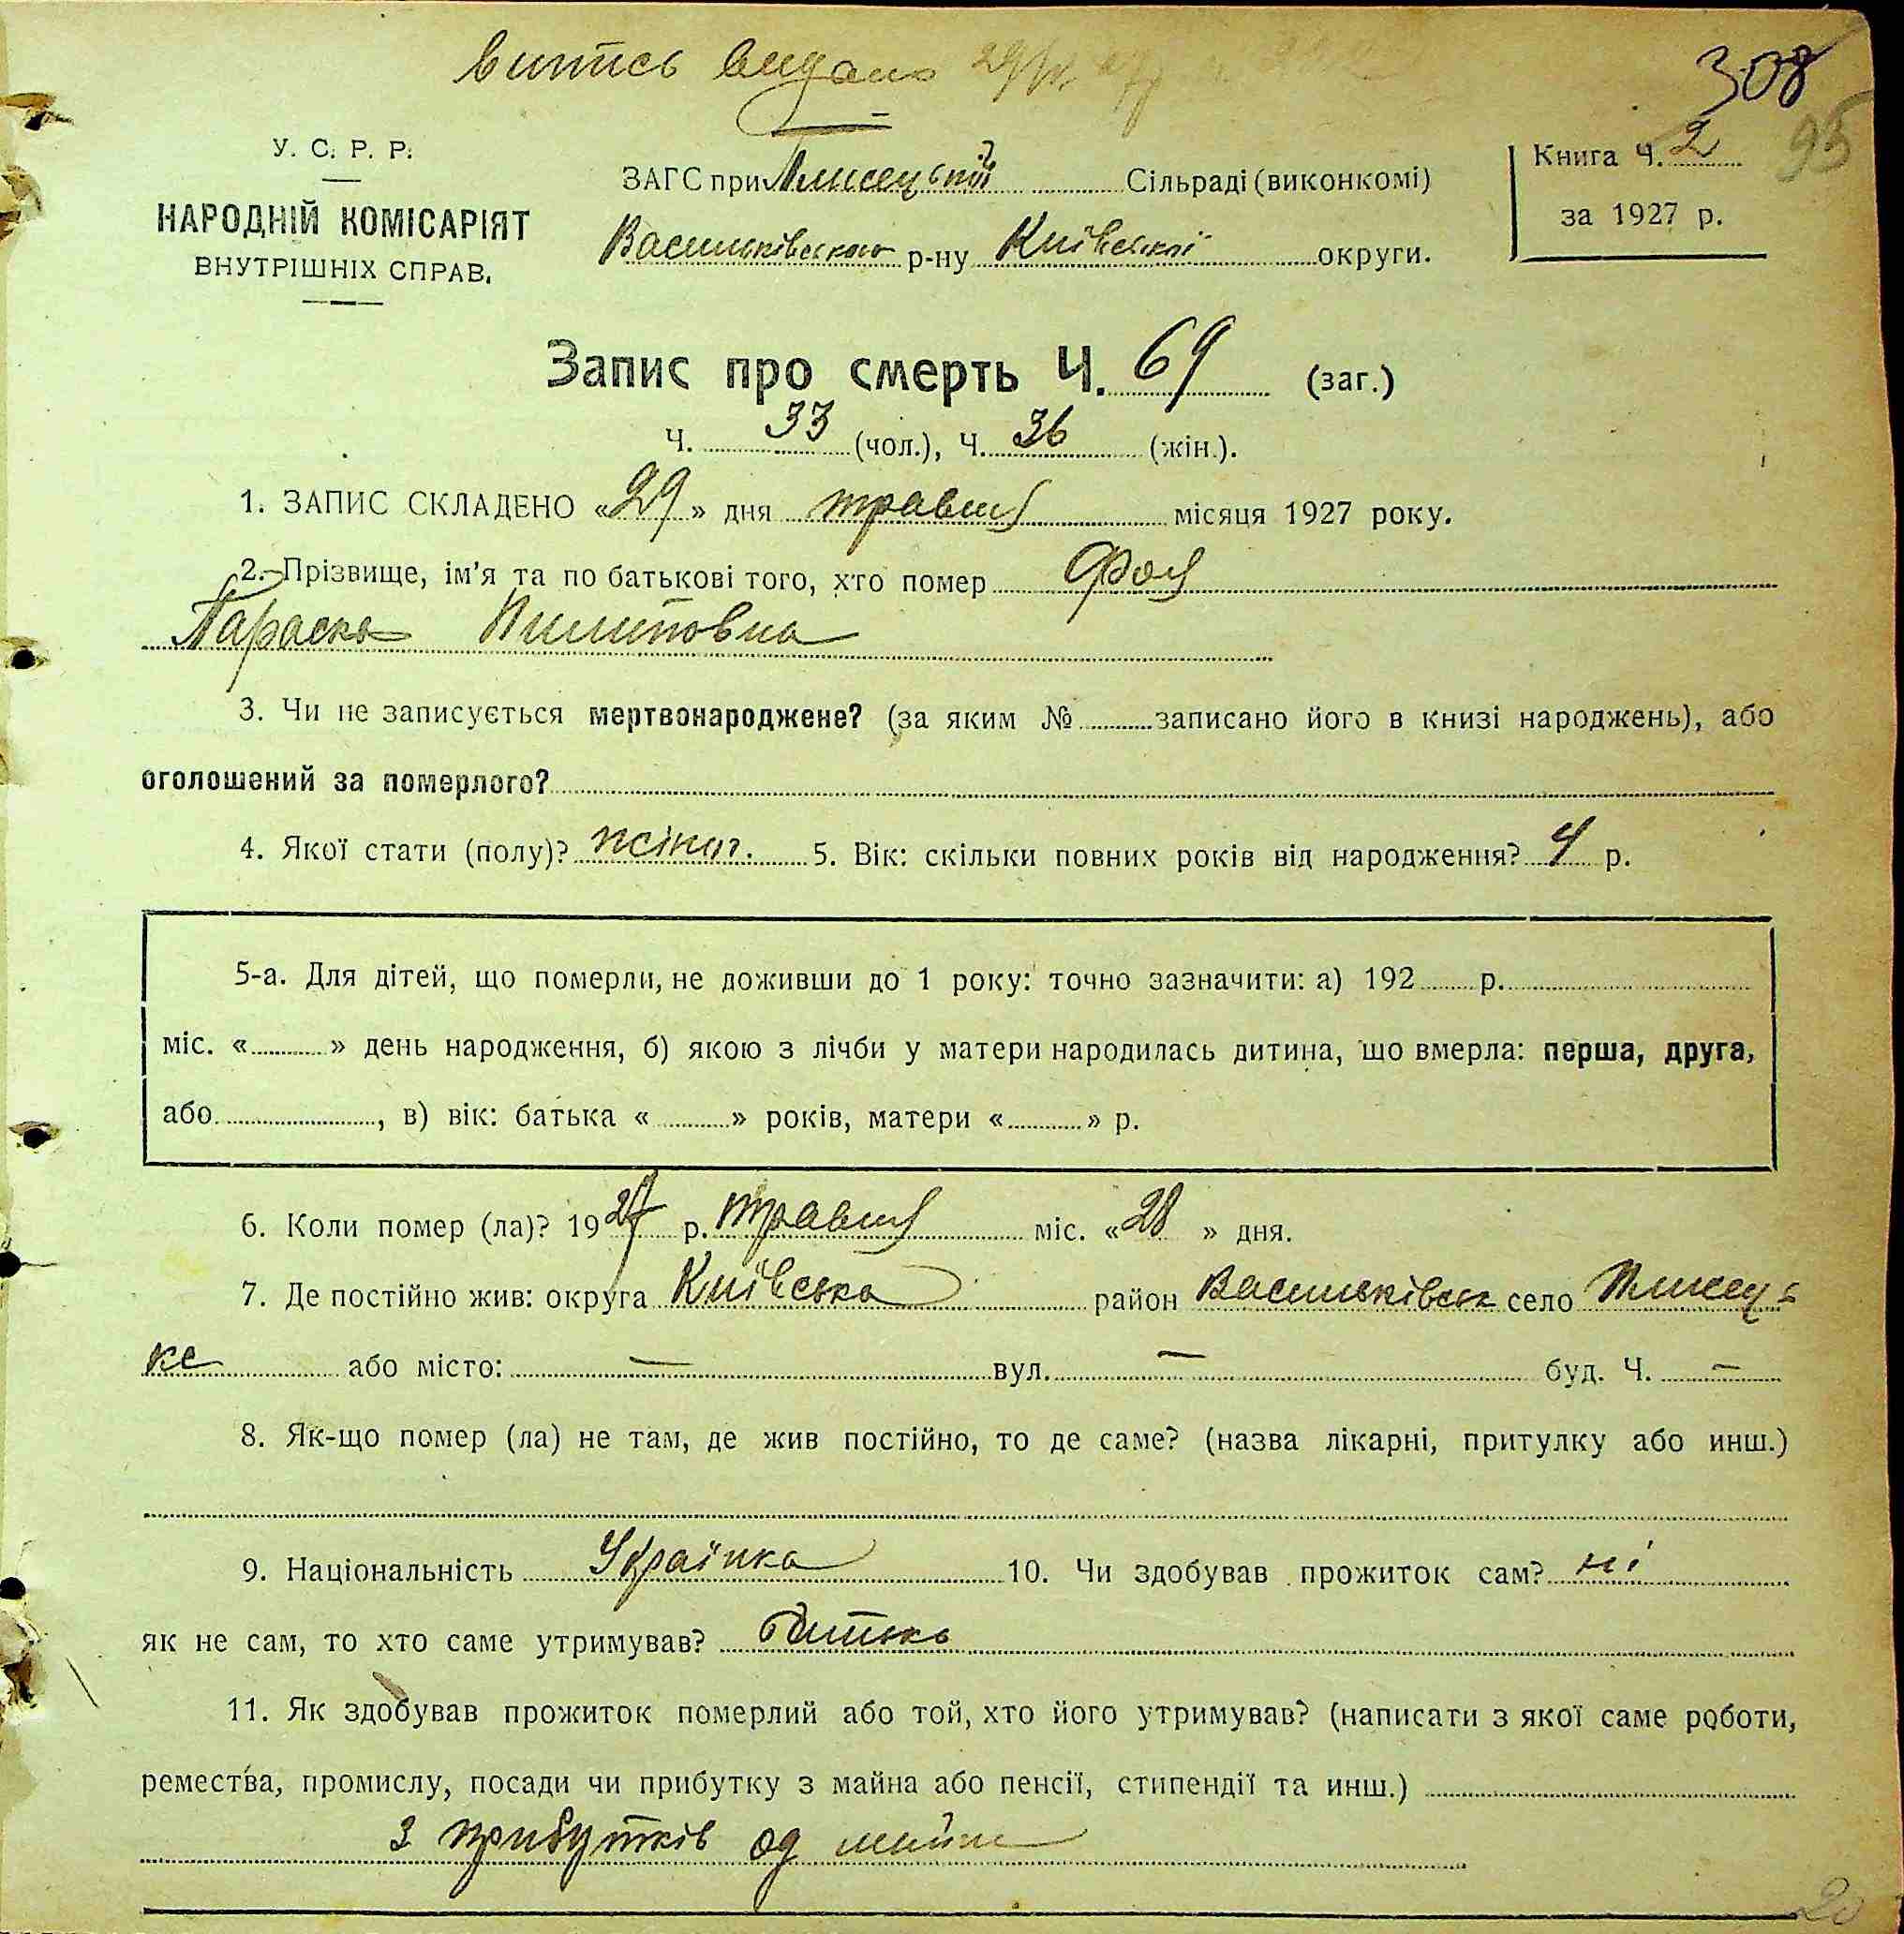 витись видано 29/V 27
308
95
У. С. Р. Р.
НАРОДНІЙ КОМІСАРІЯТ
ВНУТРІШНІХ СПРАВ.
ЗАГС при Плисецькій Сільраді (виконкомі)
Васильківського р-ну Київської округи.
Книга Ч. 2
за 1927 р.
Запис про смерть Ч. 69 (заг.)
Ч. 33 (чол.), Ч. 36 (жін.).
1. ЗАПИС СКЛАДЕНО «29» дня травня місяця 1927 року.
2. Прізвище, ім'я та по батькові того, хто помер Фоя
Параска Пилиповна
3. Чи не записується мертвонароджене? (за яким № записано його в книзі народжень), або
оголошений за померлого?
4. Якої стати (полу)? жіноч. 5. Вік: скільки повних років від народження? 4 р.
5-а. Для дітей, що померли, не доживши до 1 року: точно зазначити: а) 192 р.
міс. « » день народження, б) якою з лічби у матери народилась дитина, що вмерла: перша, друга,
або , в) вік: батька « » років, матери « » р.
6. Коли помер (ла)? 1927 р. травня міс. «28» дня.
7. Де постійно жив: округа Київська район Васильківськ село Плисець
ке або місто: — вул. — буд. Ч. —
8. Як-що помер (ла) не там, де жив постійно, то де саме? (назва лікарні, притулку або инш.)
9. Національність Українка 10. Чи здобував прожиток сам? ні
як не сам, то хто саме утримував? Батько
11. Як здобував прожиток померлий або той, хто його утримував? (написати з якої саме роботи,
ремества, промислу, посади чи прибутку з майна або пенсії, стипендії та инш.)
з прибутків од майна
20